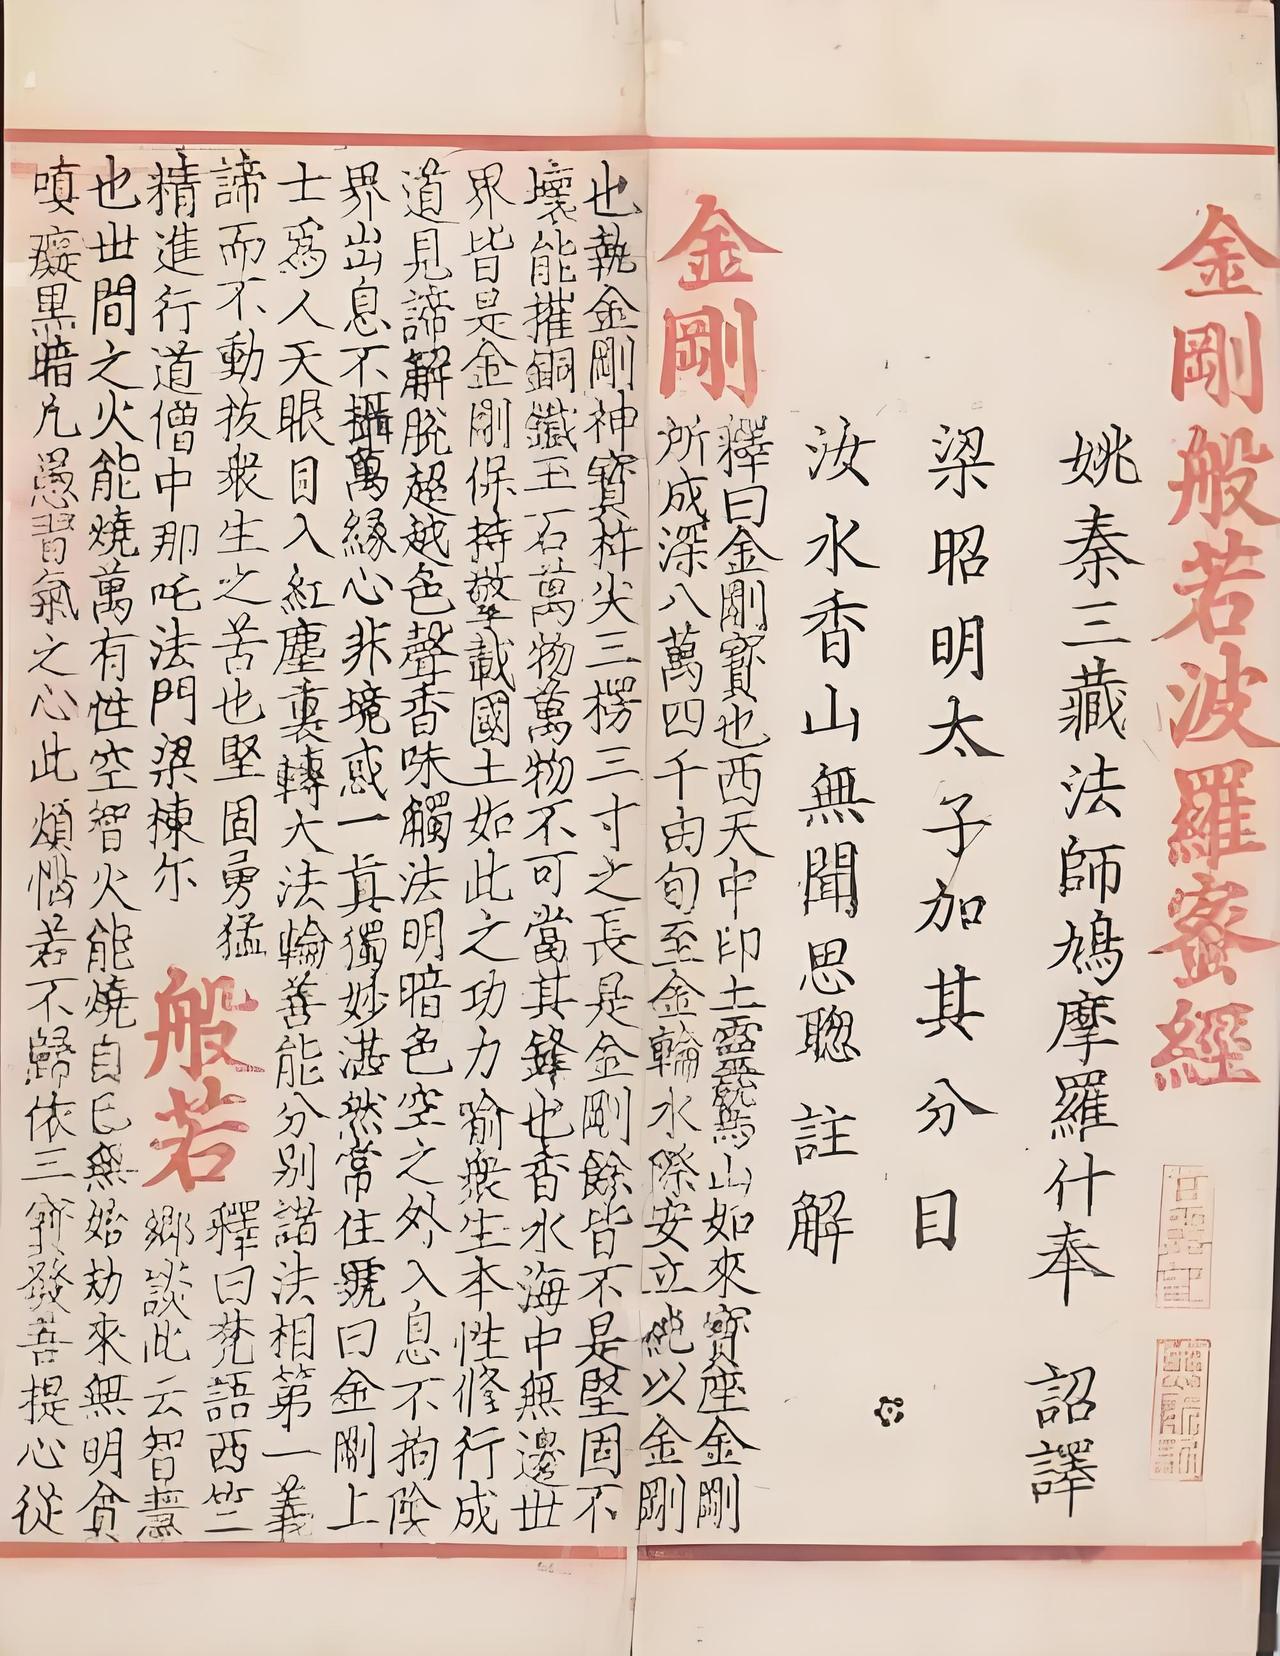 金剛般若波羅蜜經
姚秦三藏法師鳩摩羅什奉 詔譯
梁昭明太子加其分目
汝水香山無聞思聰 註解
金剛
釋曰金剛寶也西天中印土靈鷲山如來寶座金剛
所成深八萬四千由旬至金輪水際安立純以金剛
也執金剛神寶杵尖三楞三寸之長是金剛餘皆不是堅固不
壞能摧銅鐵玉石萬物萬物不可當其鋒也香水海中無邊世
界皆是金剛保持擎載國土如此之功力喻衆生本性修行成
道見諦解脫超越色聲香味觸法明暗色空之外入息不拘陰
界出息不攝萬緣心非境惑一眞獨妙湛然常住號曰金剛上
士爲人天眼目入紅塵裏轉大法輪善能分别諸法相第一義
諦而不動拔衆生之苦也堅固勇猛
精進行道僧中那吒法門梁棟尔
般若
釋曰梵語西竺
鄉談此云智慧
也世間之火能燒萬有性空智火能燒自己無始劫來無明貪
嗔癡黒暗凢愚習氣之心此煩惱若不歸依三寳發菩提心從